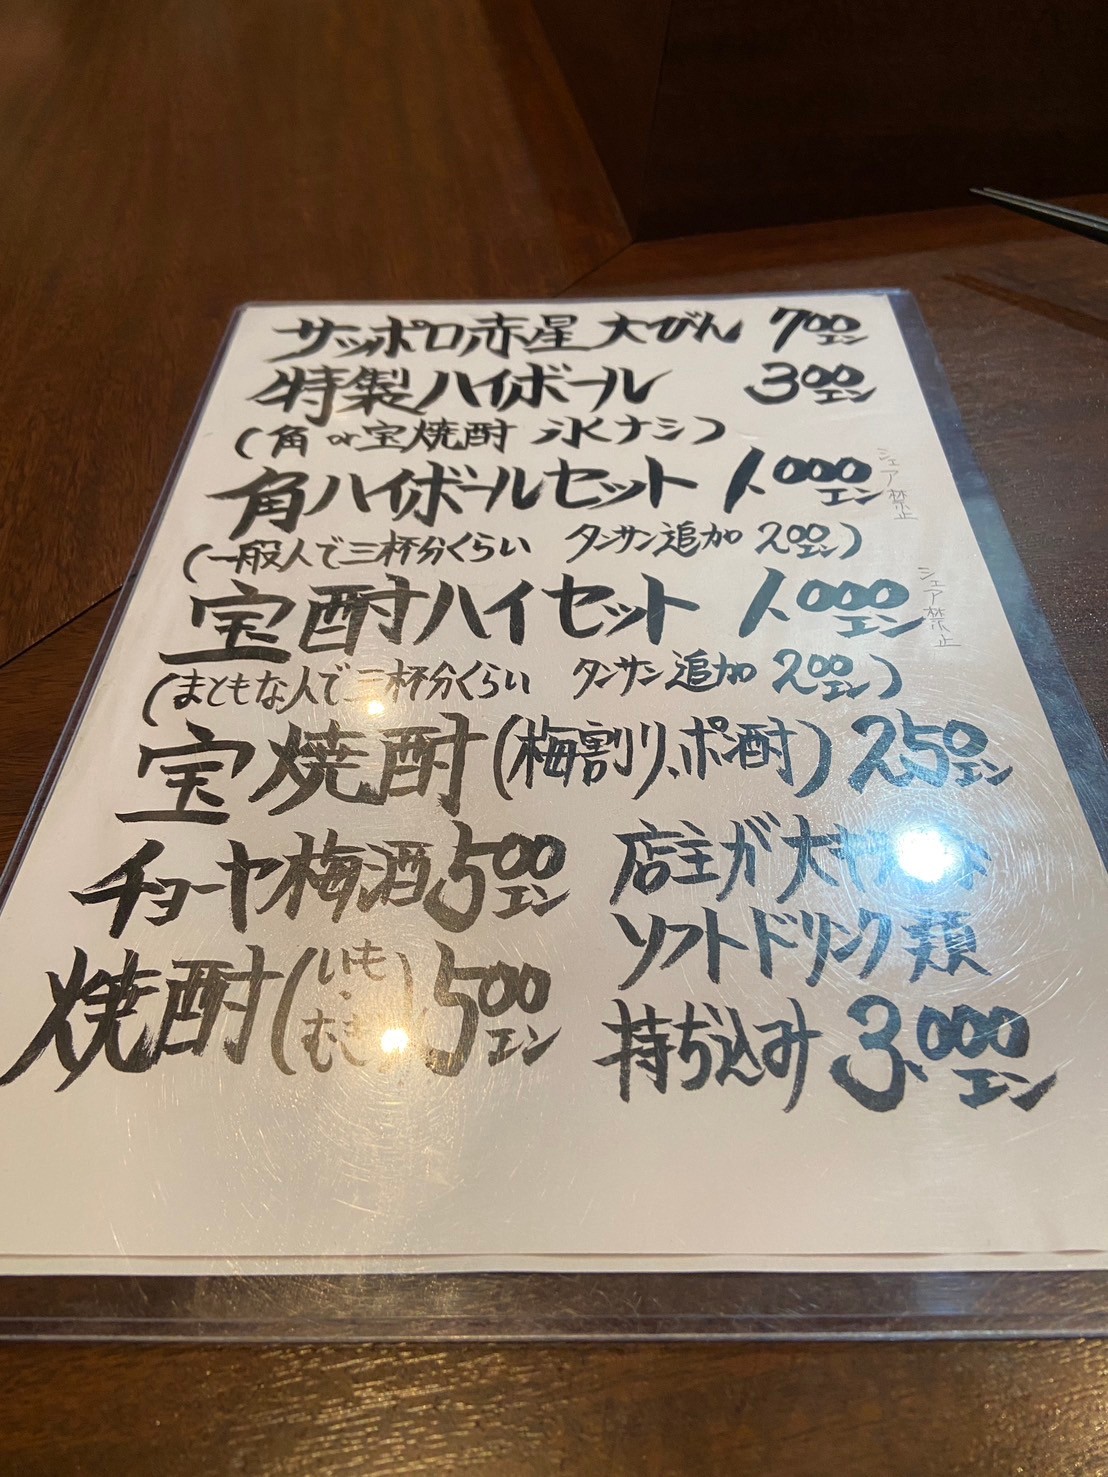 サッポロ赤星 大びん 700エン
特製ハイボール 300エン
(角 or 宝焼酎 氷ナシ)
角ハイボールセット 1,000エン シェア禁止
(一般人で三杯分くらい タンサン追加 200エン)
宝酎ハイセット 1,000エン シェア禁止
(まともな人で三杯分くらい タンサン追加 200エン)
宝焼酎(梅割り、ポ酎) 250エン
チョーヤ梅酒 500エン
焼酎(いも・むぎ) 500エン
店主ガ大
ソフトドリンク類
持ち込み 3,000エン